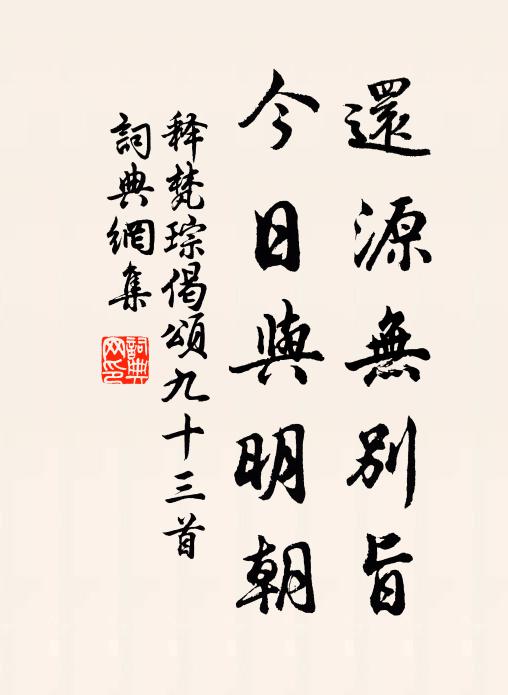 還源無別旨
今日與明朝
释梵琮偈頌九十三首
詞典網集
詞典網印